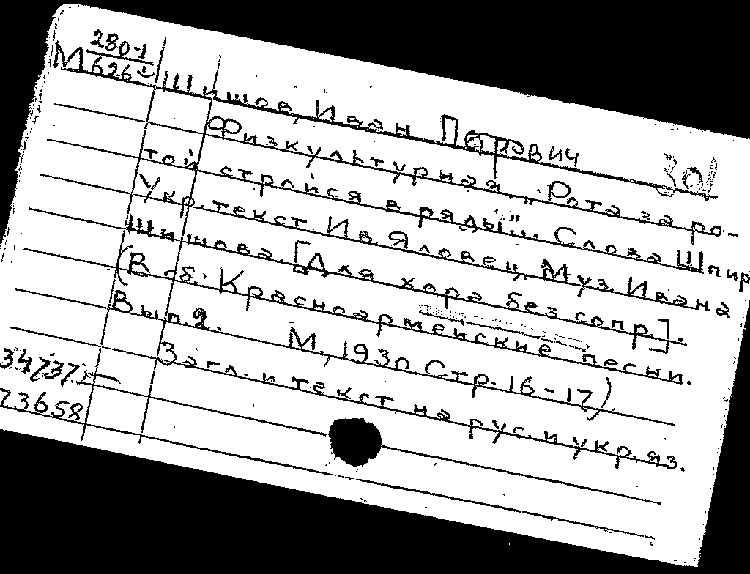 М 2801
626
Шишов, Иван Петрович
301
Физкультурная. „Рота за ро-
той стройся в ряды"... Слова Шпир
Укр. текст Ив. Яловец, Муз. Ивана
Шишова. [Для хора без сопр.].
(В сб.: Красноармейские песни.
Вып. 2. М., 1930 Стр. 16-17)
Загл. и текст на рус. и укр. яз.
34737
73658